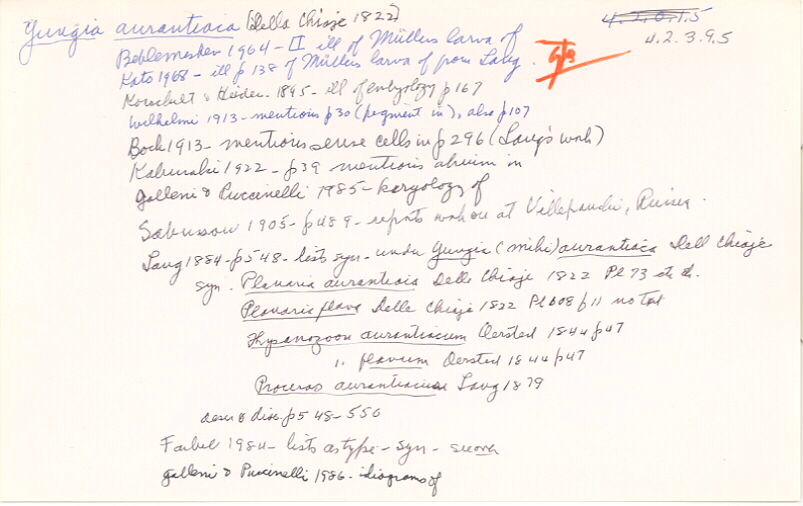 Yungia aurantiaca (Delle Chiaje 1822)
4.2.0.1.5
4.2.3.9.5
Beklemeshev 1964 - II ill of Müllers larva of
Kato 1968 - ill p 138 of Müllers larva of from Lang.
Korschelt & Heider - 1895 - ill of embryology p 167
Wilhelmi 1913 - mentions p 30 (pigment in), also p 107
Bock 1913 - mentions sense cells in p 296 (Lang's work)
Kaburaki 1922 - p 39 mentions in
Galleni & Puccinelli 1985 - karyology of
Sabussow 1905 - p 489 - reports work on at Villefranche,
Lang 1884 - p 548 - lists syn - under Yungia (mihi) aurantiaca Delle Chiaje
syn. Planaria aurantiaca Delle Chiaje 1822 Pl 73 etc.
Planaria flava Delle Chiaje 1822 Pl 108 f 11 no text
Thysanozoon aurantiacum Oersted 1844 p 47
" flavum Oersted 1844 p 47
Proceros aurantiacus Lang 1879
descr & disc. p 548 - 550
Faubel 1984 - lists as type - syn - see over
Galleni & Puccinelli 1986 - idiograms of